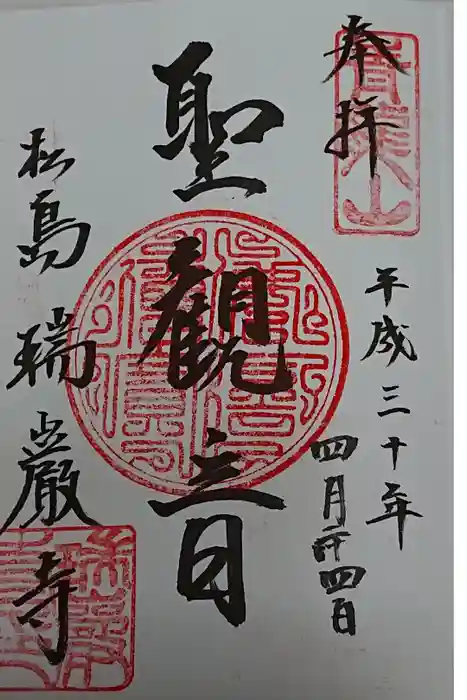 奉拝
平成三十年
四月廿四日
聖観音
松島瑞巌寺